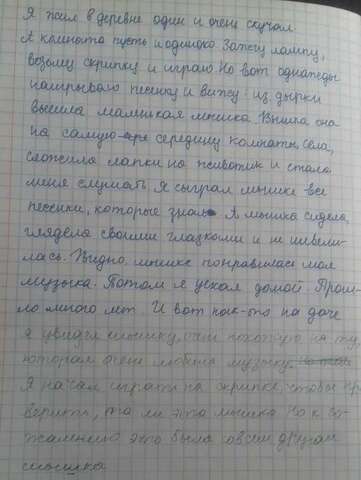 Я жил в деревне один и очень скучал.
А комната пуста и одиноко. Зажгу лампу,
возьму скрипку и играю. Но вот однажды
наигрываю песенку и вижу: из дырки
вышла маленькая мышка. Вышла она
на самую середину комнаты, села,
сложила лапки на животик и стала
меня слушать. Я сыграл мышке все
песенки, которые знал. А мышка сидела
глядела своими глазками и не шевели-
лась. Видно, мышке понравилась моя
музыка. Потом я уехал домой. Прош-
ло много лет. И вот как-то на даче
я увидел мышку, очень похожую на ту,
которая очень любила музыку.
Я начал играть на скрипке, чтобы пр
верить, та ли это мышка. Но к со-
жалению это была совсем другая
мышка